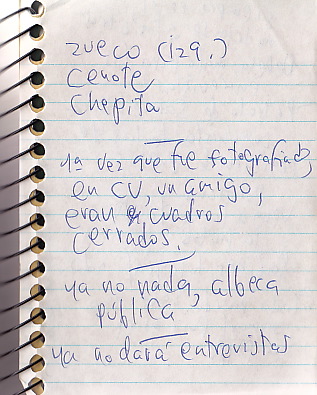 zueco (izq.)
Cenote
Chepita
1ª vez que fue fotografiado,
en CU, un amigo,
eran cuadros
cerrados.
ya no nada, alberca
pública
ya no dará entrevistas